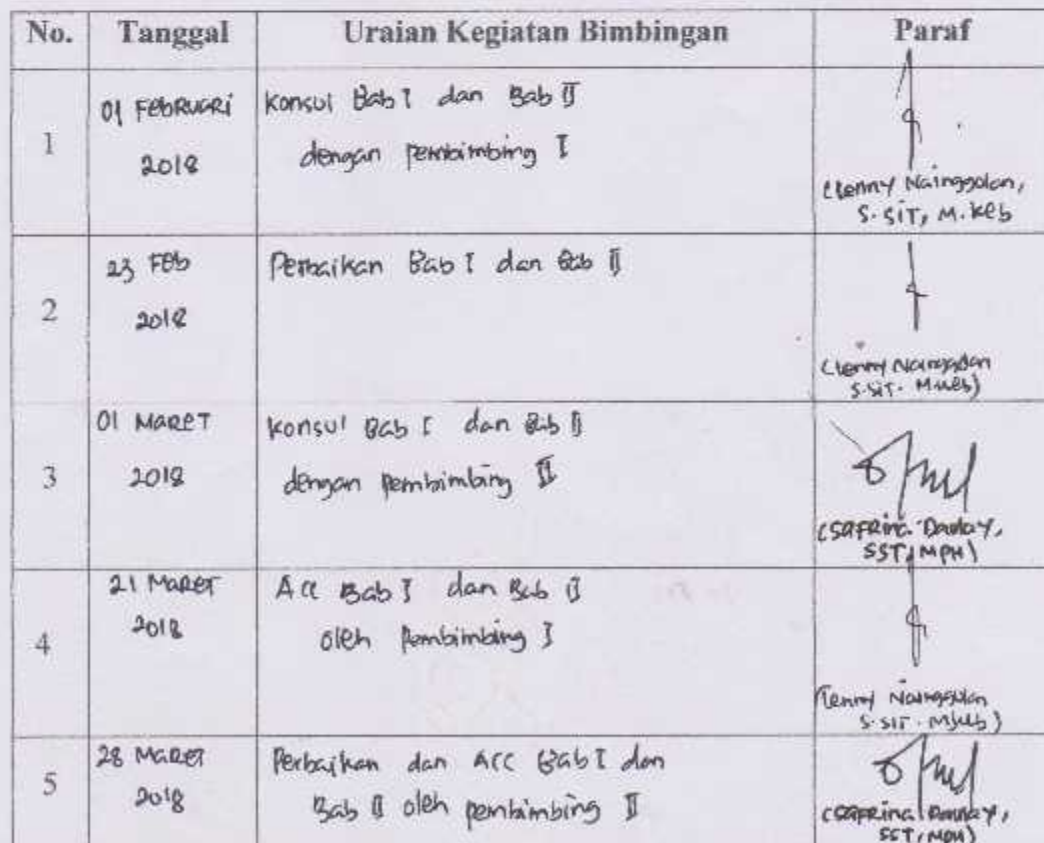 No. Tanggal Uraian Kegiatan Bimbingan Paraf
1
01 Februari
2018
Konsul Bab I dan Bab II
dengan pembimbing I
(Lenny Nainggolan,
S.SiT, M.Keb
2
23 Feb
2018
Perbaikan Bab I dan Bab II
(Lenny Nainggolan
S.SiT. M.Keb)
3
01 Maret
2018
Konsul Bab I dan Bab II
dengan pembimbing II
(Safrina Daulay,
SST, MPH)
4
21 Maret
2018
Acc Bab I dan Bab II
oleh Pembimbing I
(Lenny Nainggolan
S.SiT. M.Keb)
5
28 Maret
2018
Perbaikan dan Acc Bab I dan
Bab II oleh pembimbing II
(Safrina Daulay,
SST, MPH)